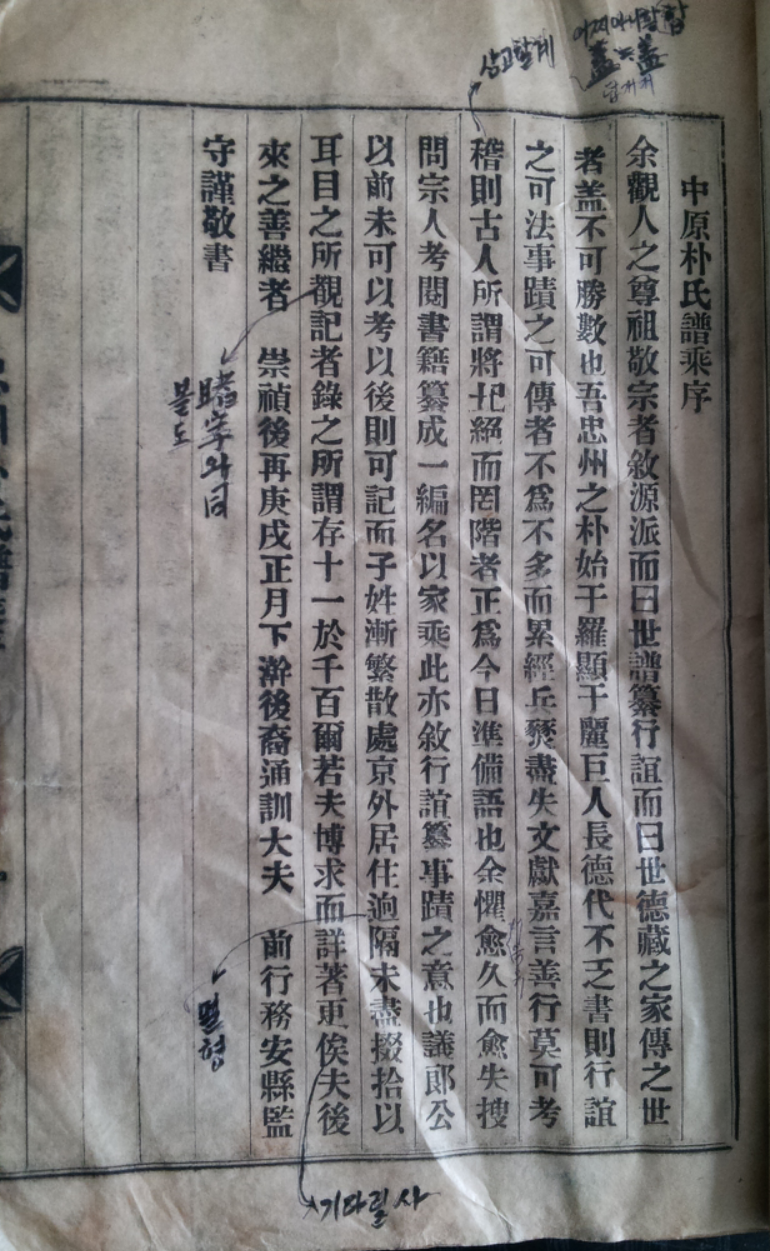 中原朴氏譜乘序
余觀人之尊祖敬宗者敘源派而曰世譜纂行誼而曰世德藏之家傳之世
者盖不可勝數也吾忠州之朴始于羅顯于麗巨人長德代不乏書則行誼
之可法事蹟之可傳者不爲不多而累經兵燹盡失文獻嘉言善行莫可考
稽則古人所謂將圮絕而罔階者正爲今日準備語也余懼愈久而愈失搜
問宗人考閱書籍纂成一編名以家乘此亦敘行誼纂事蹟之意也議郞公
以前未可以考以後則可記而子姓漸繁散處京外居住逈隔未盡掇拾以
耳目之所覩記者錄之所謂存十一於千百爾若夫博求而詳著更俟夫後
來之善繼者 崇禎後再庚戌正月下澣後裔通訓大夫 前行務安縣監
守謹敬書
상고할계
어찌아니할합
盖=盖
睹字와同
볼도
멀형
기다릴사